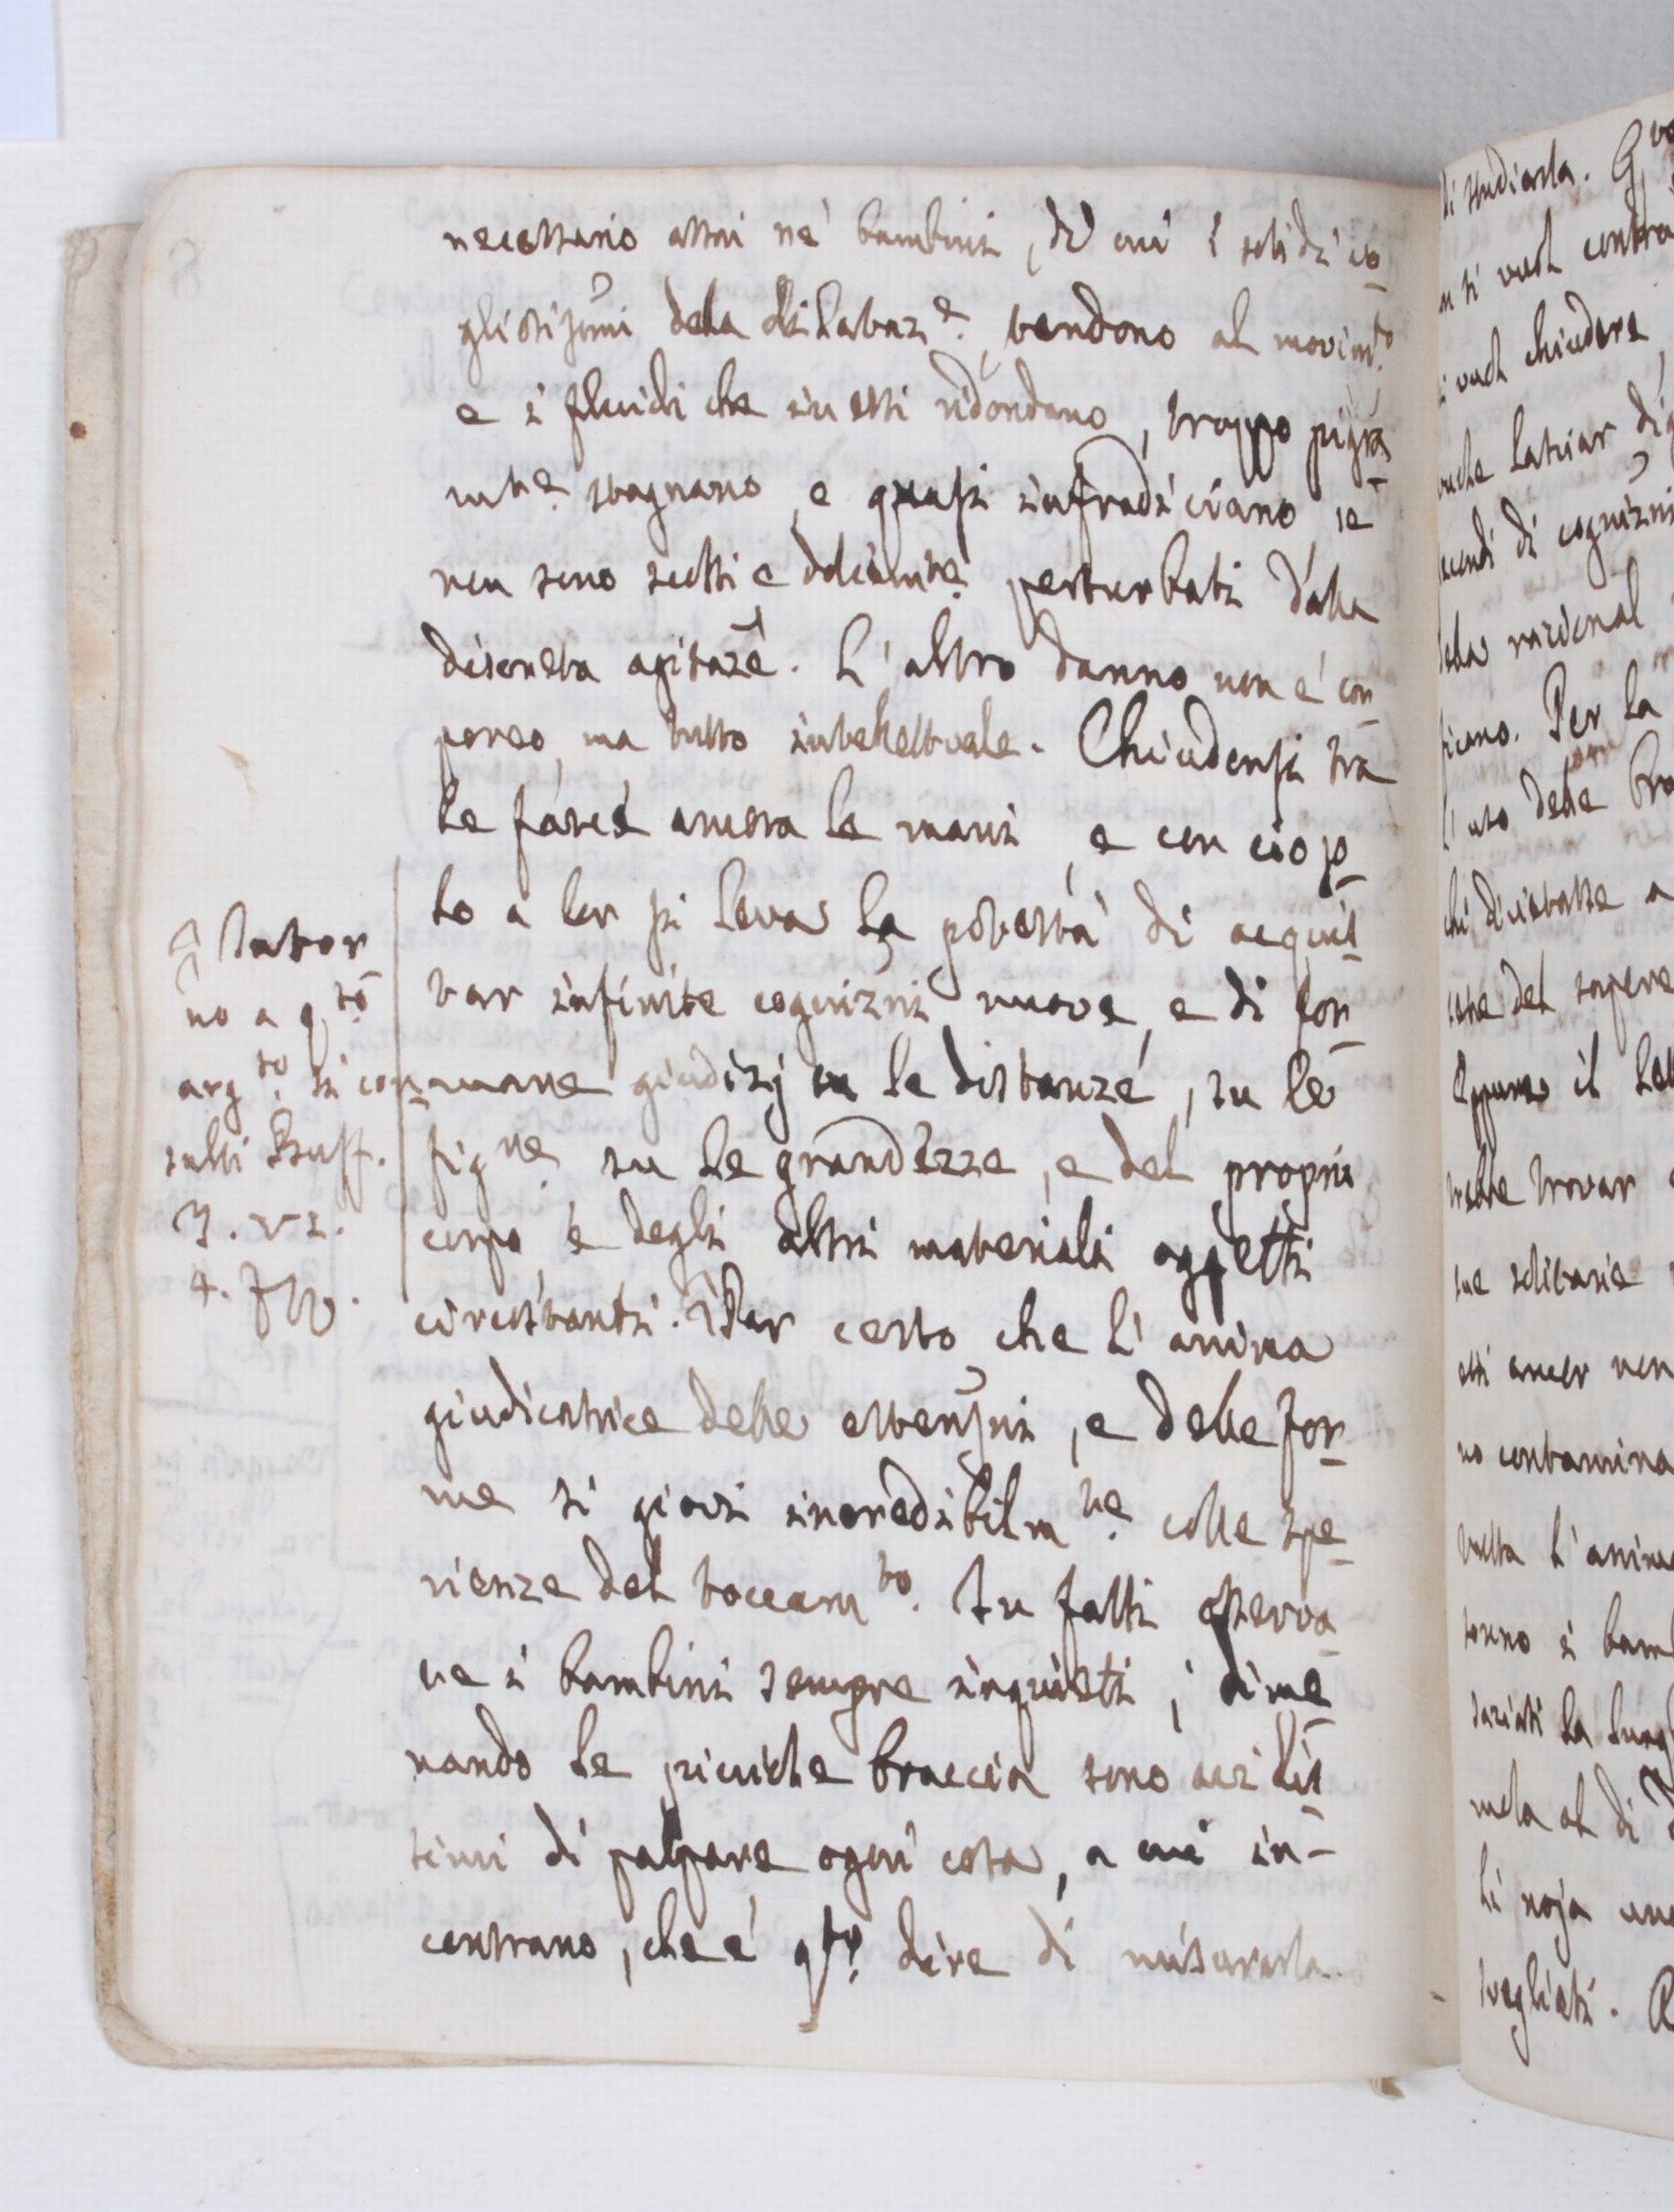 necessario assai ne' bambini, di cui i solidi vo-
gliosissimi della dilataz.e, tendono al movim.to
e i fluidi che in essi ridondano, troppo pigra-
mte. stagnano, e quasi infradiciano se
non sono scossi e dolcemte. perturbati dalla
discreta agitaze. L'altro danno non è cor-
poreo, ma tutto intellettuale. Chiudonsi tra
le fasce ancora le mani, e con ciò
lo a lor si leva la potestà di acquis-
tar infinite cognizni nuove, e di for-
mare giudizj su le distanze, su le
figre. su le grandezze, e del proprio
corpo, e degli altri materiali oggetti
circostanti. Per certo che l'anima
giudicatrice delle estensni, e delle for-
me si giovi incredibilmte. colle spe-
rienze del toccamto. In fatti osserva-
te i bambini sempre inquieti; dime-
nando le picciole braccia sono avidis-
simi di palpare ogni cosa, a cui in-
contrano, che è qto. dire di misurarla.
Intor
no a qto
argto. si con-
sulti Buff.
3. VI.
4.
di studiarla.
si vuol contra
vuol chiudere
lasciar
di cognizni
della razional
Per la
uso delle bra
del sapere
Eppure il
trovar
sue solitarie
ancor non
no contamina
volta l'anima
i bamb
la lung
al di
noja
svegliati.